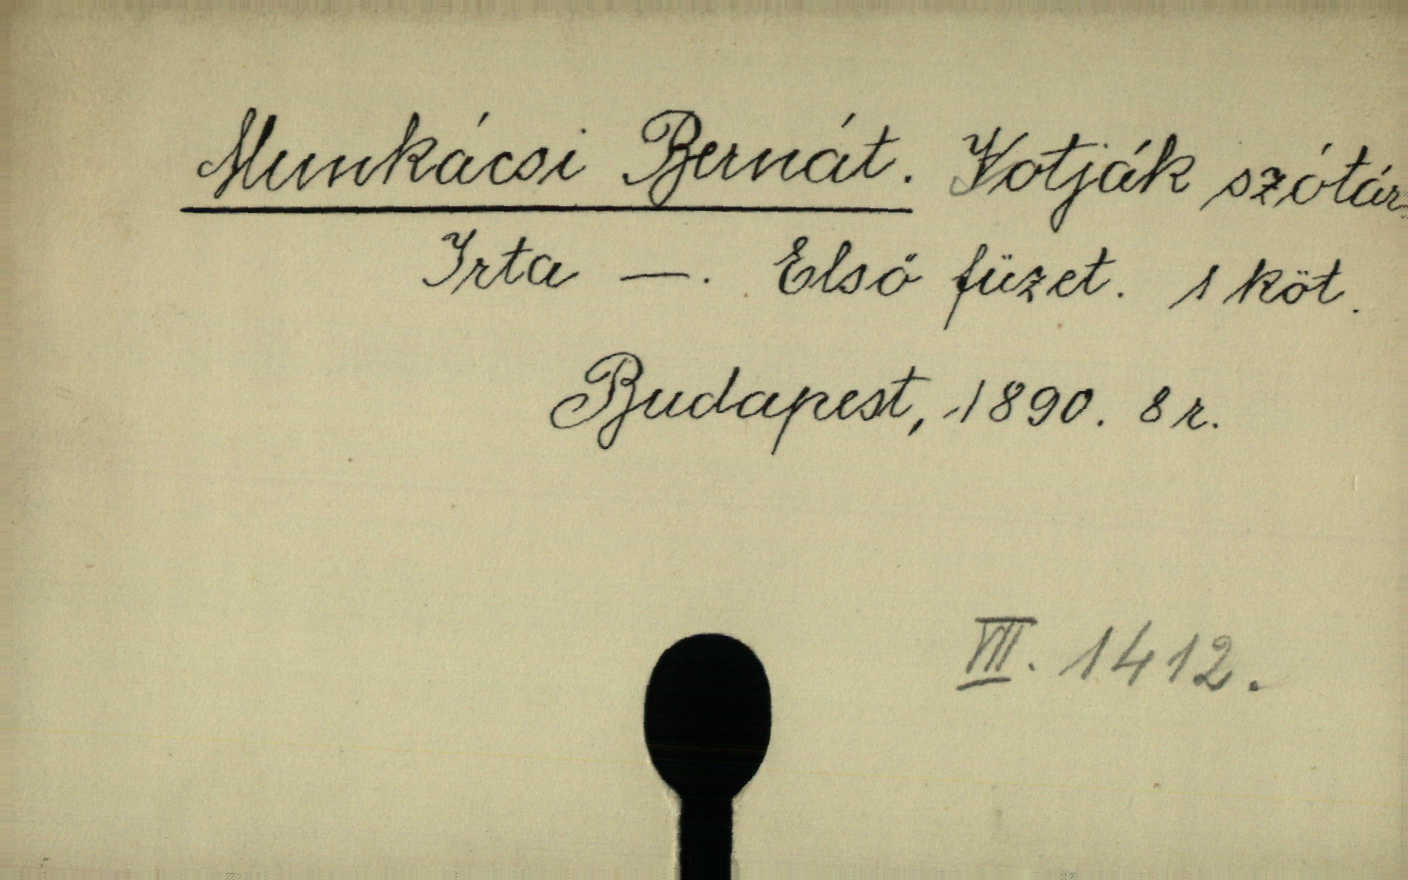 Munkácsi Bernát. Votják szótár.
Irta —. Első füzet. 1 köt.
Budapest, 1890. 8 r.
VII. 1412.